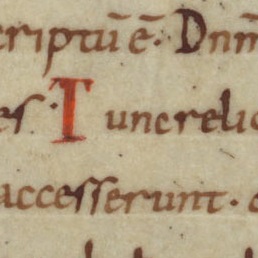 criptū ē. Dnm
es. Tunc relic
accesserunt.